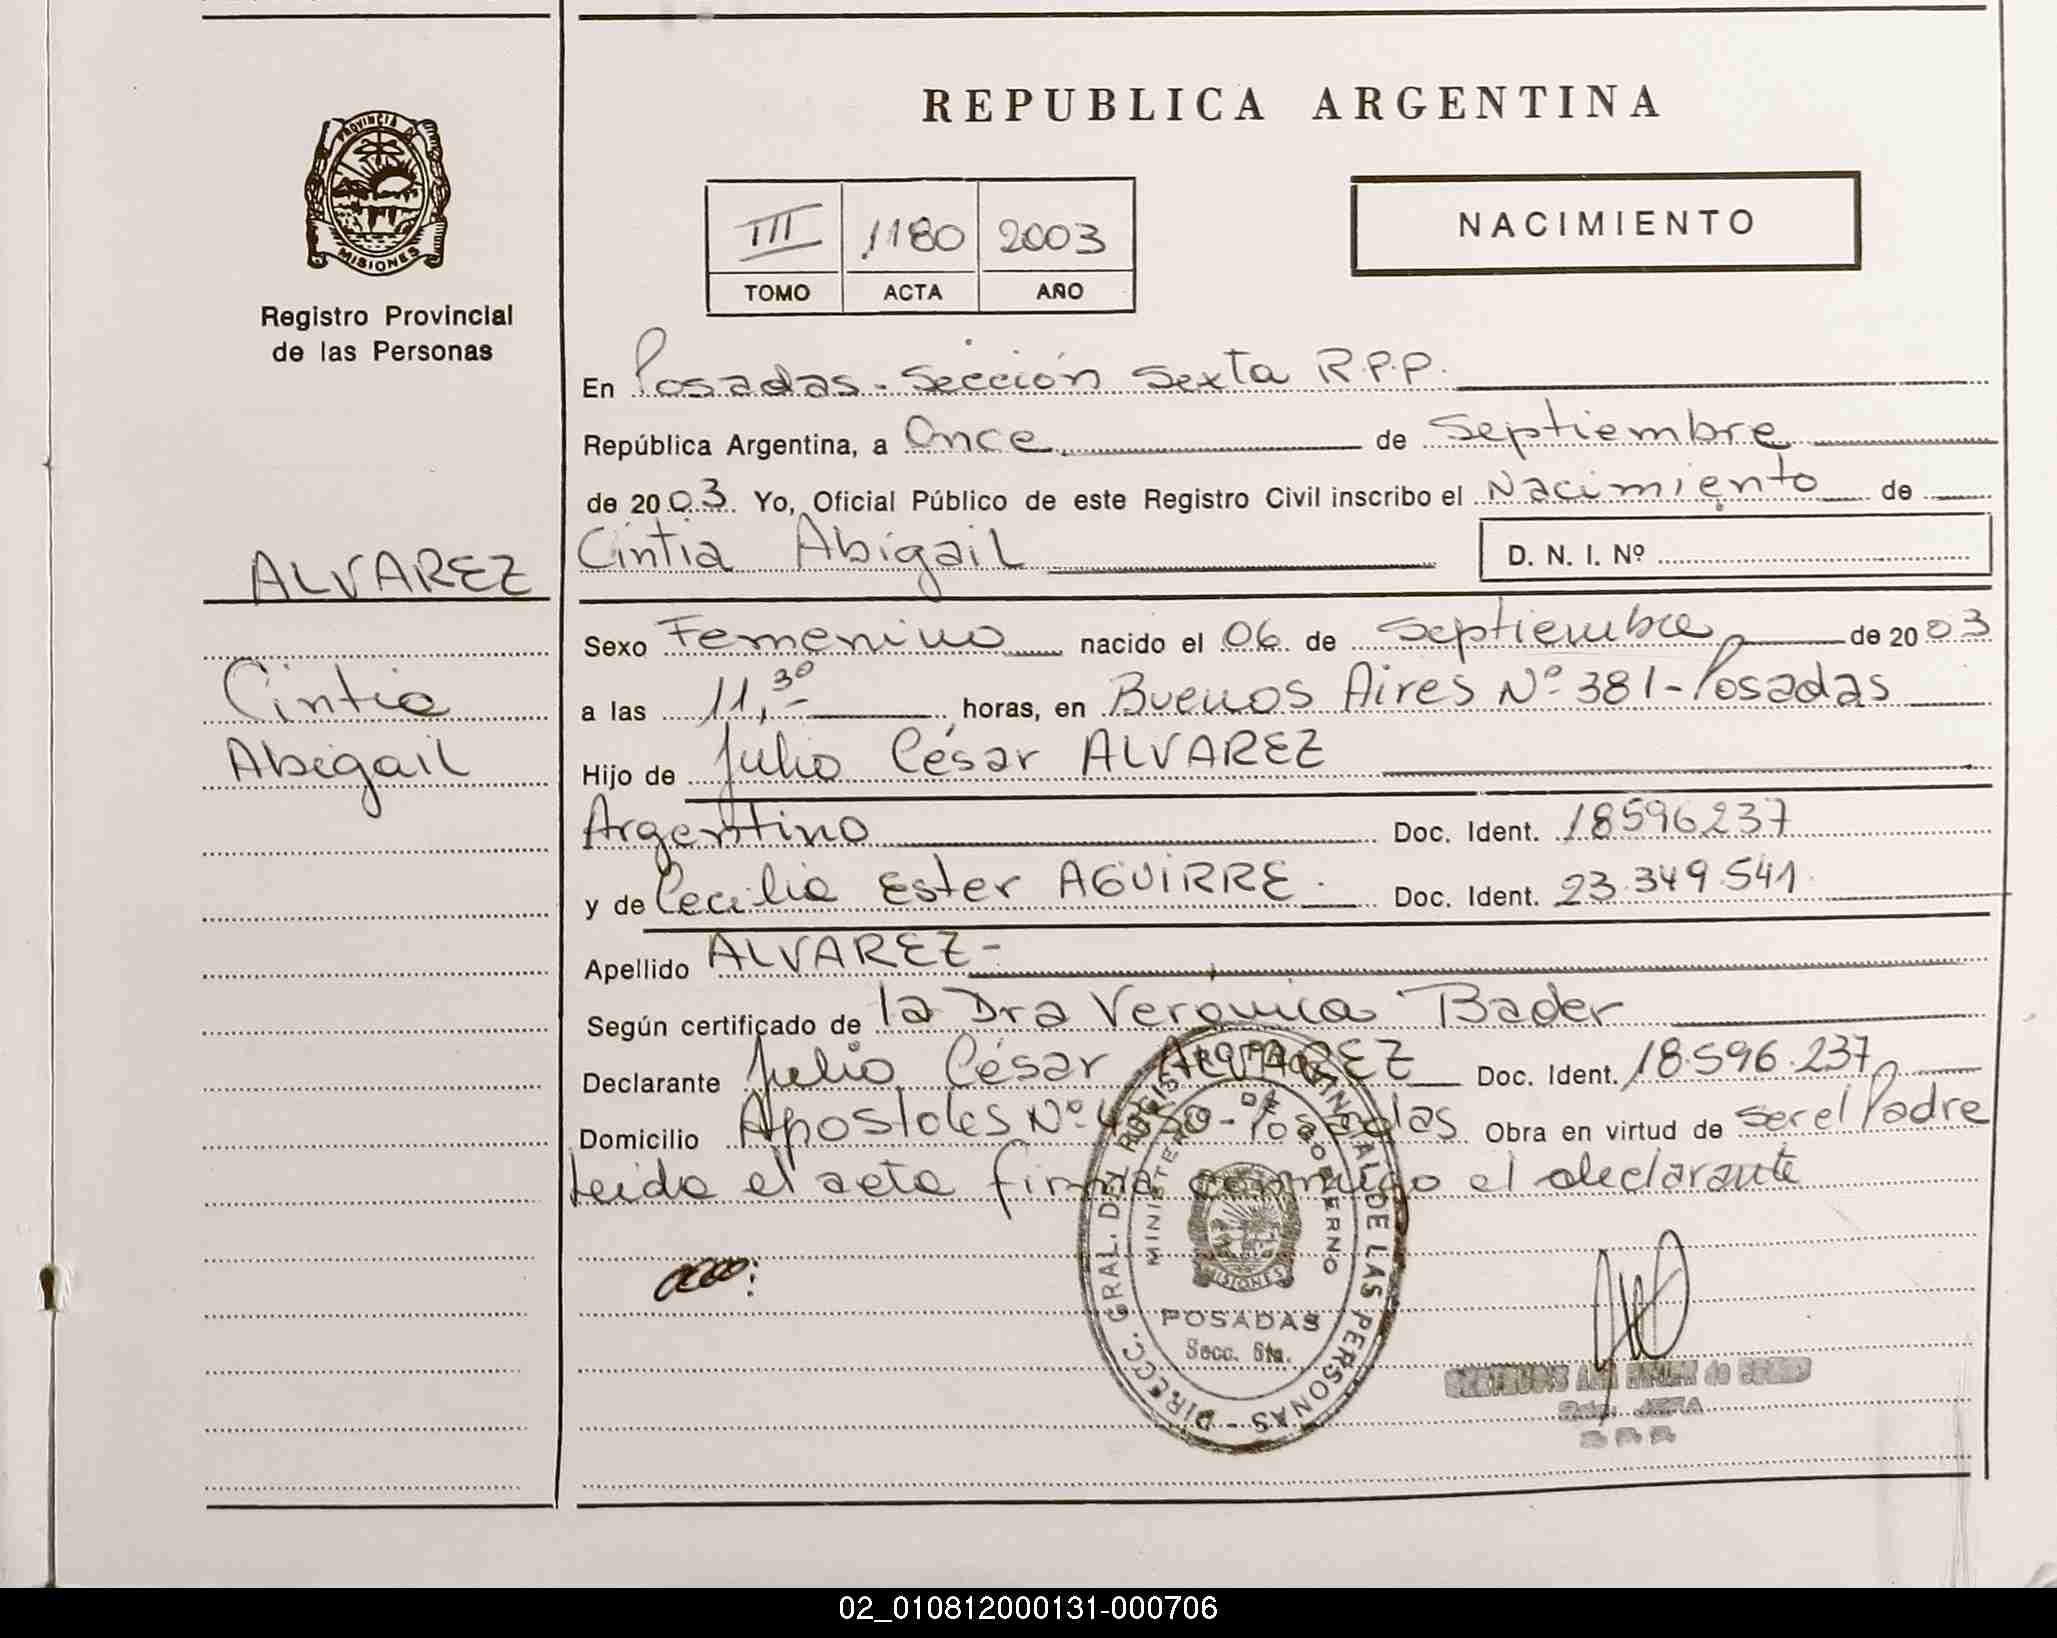 REPUBLICA ARGENTINA
PROVINCIA D
MISIONES
Registro Provincial
de las Personas
III 1180 2003
TOMO ACTA AÑO
NACIMIENTO
En Posadas - Sección Sexta R.P.P.
República Argentina, a Once de Septiembre
de 2003 Yo, Oficial Público de este Registro Civil inscribo el Nacimiento de
ALVAREZ
Cintia Abigail D. N. I. Nº
Cintia
Abigail
Sexo Femenino nacido el 06 de Septiembre de 2003
a las 11,30 horas, en Buenos Aires Nº 381 - Posadas
Hijo de Julio César ALVAREZ
Argentino Doc. Ident. 18596237
y de Cecilia Ester AGUIRRE. Doc. Ident. 23.349.541.
Apellido ALVAREZ-
Según certificado de la Dra Verónica Bader
Declarante Julio César ALVAREZ Doc. Ident. 18.596.237
Domicilio Apostoles Nº - Posadas Obra en virtud de ser el Padre
Leida el acta firma conmigo el declarante
DIRECC. GRAL. DEL REGISTRO PROVINCIAL DE LAS PERSONAS -
MINISTERIO DE GOBIERNO
MISIONES
POSADAS
Secc. 6ta.
JEFA
02_010812000131-000706